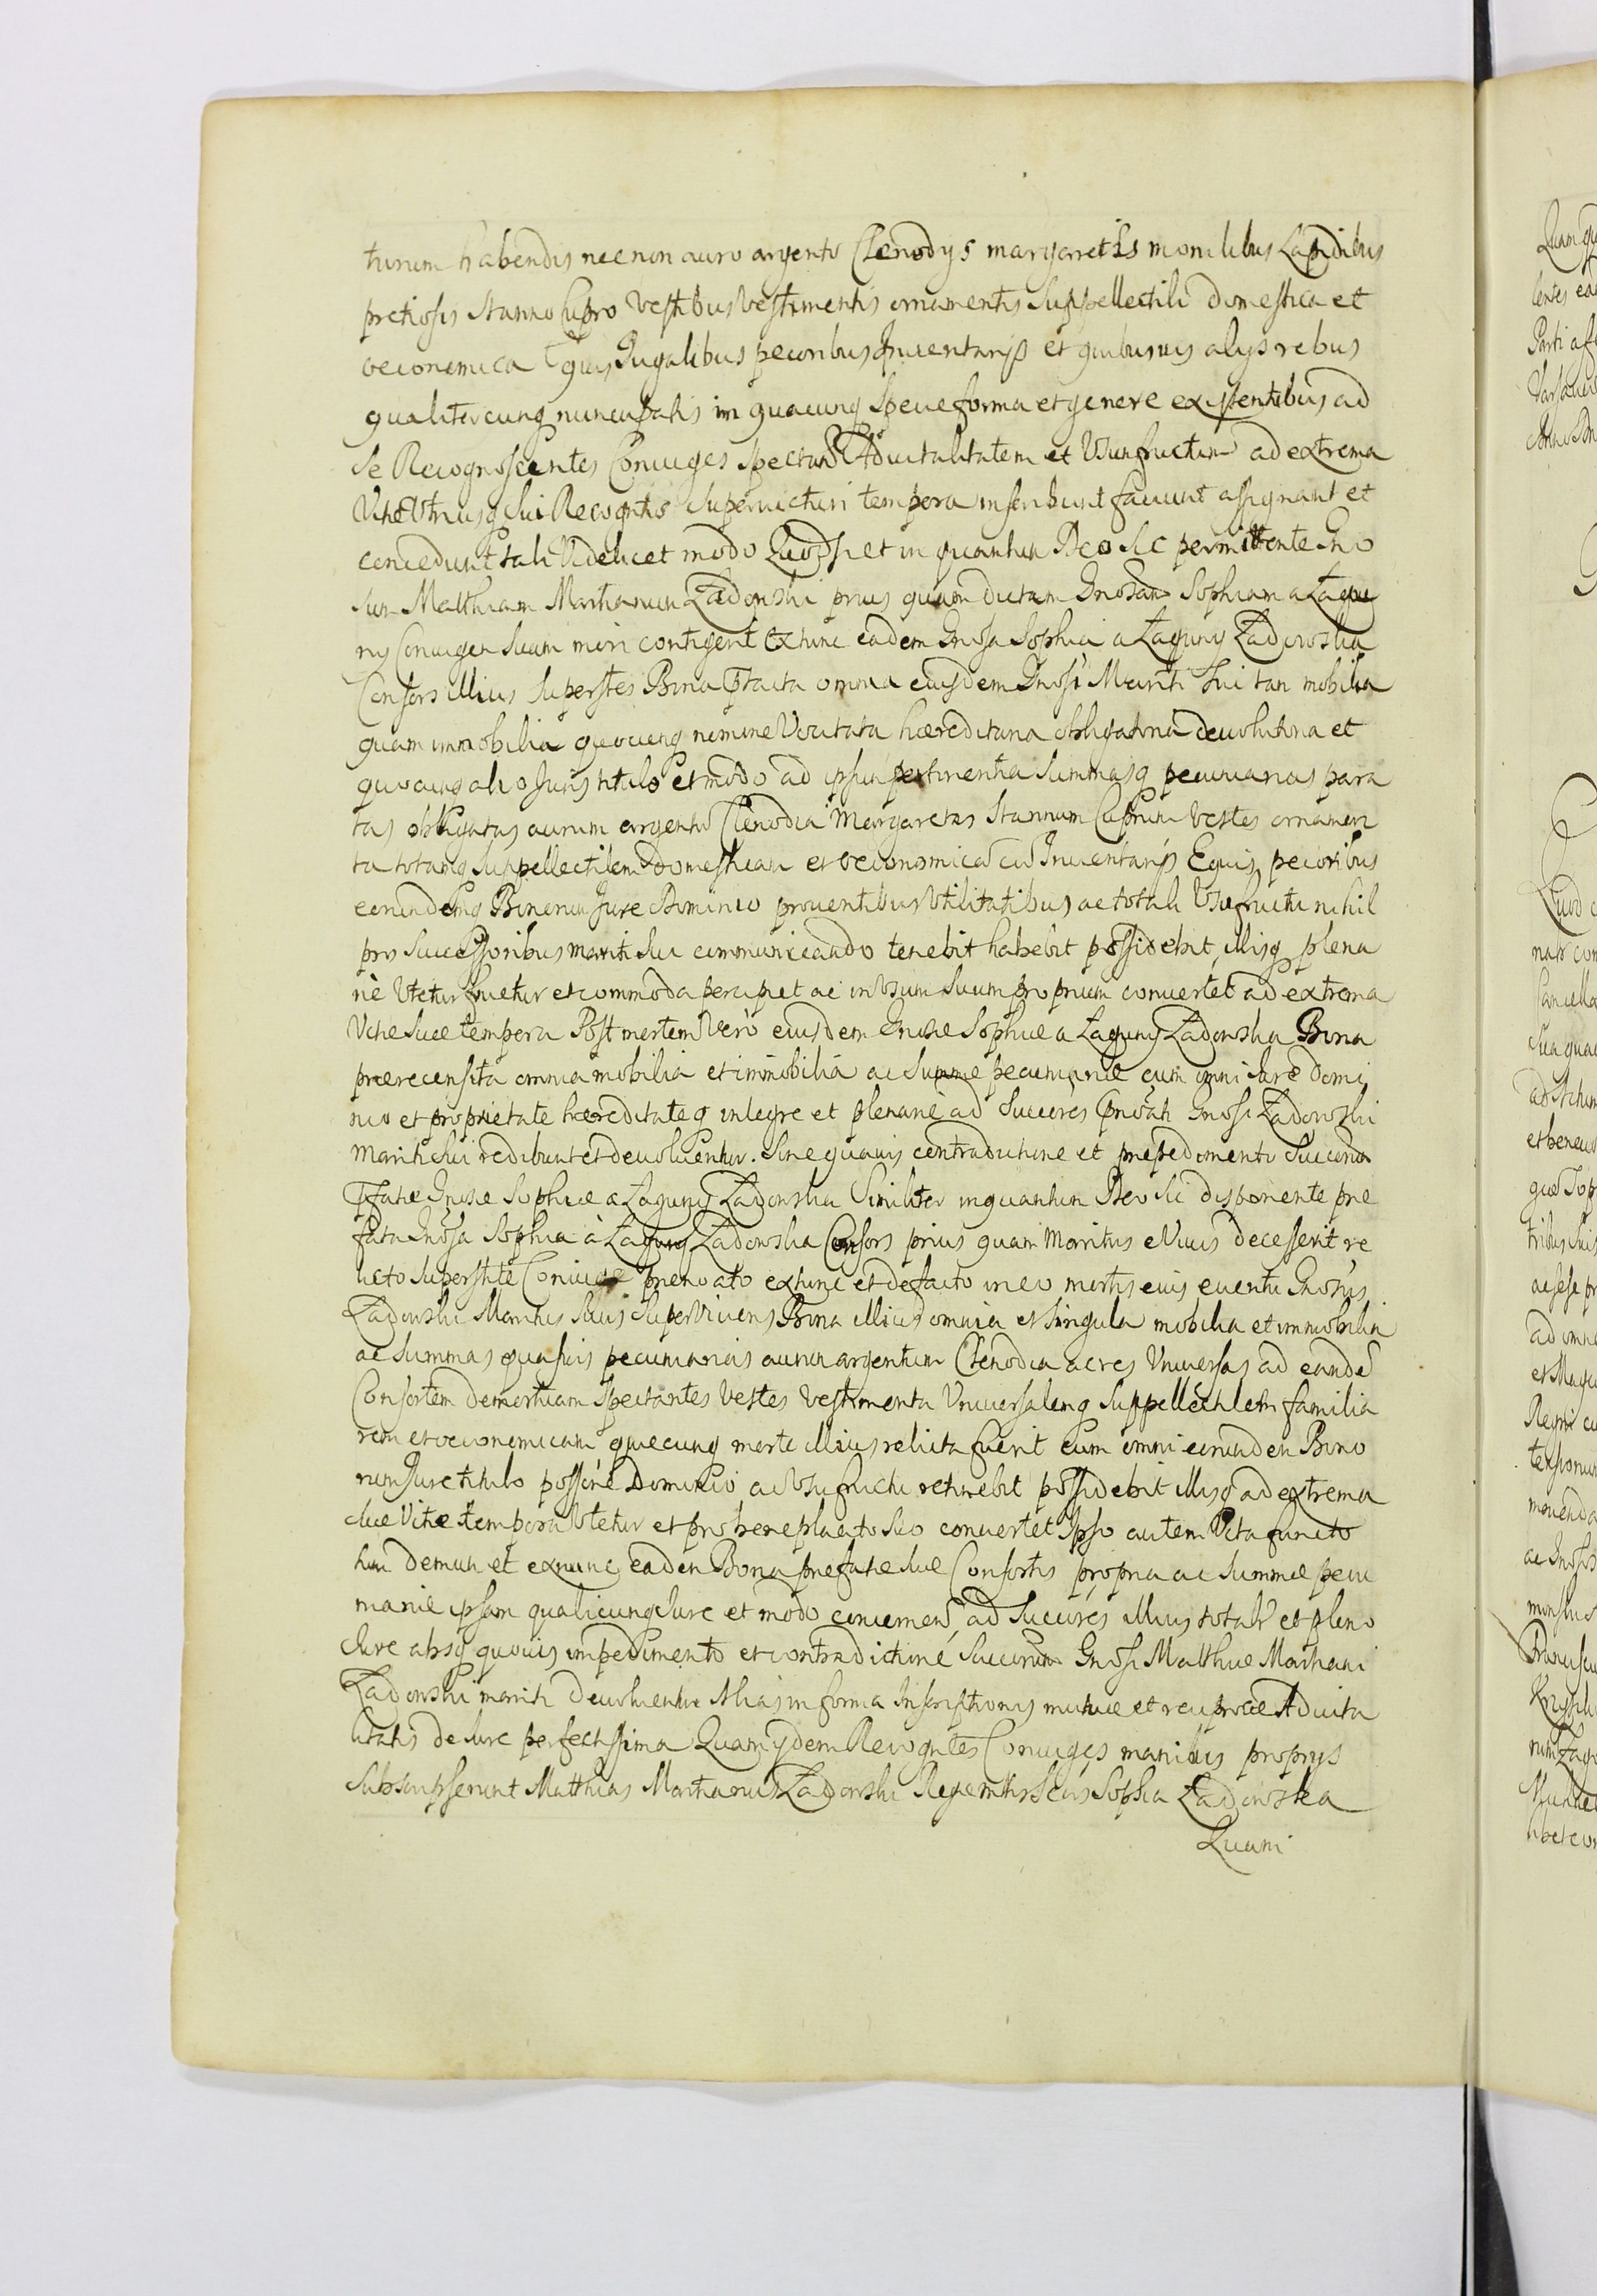 turum habendis necnon auro argento Clenodys margaretis monilibus Lapidibus
pretiosis Stanno Cupro Vestibus Vestimentis ornamentis Suppellectili domestica et
oeconomica Equis Jugalibus pecoribus Inventarys et quibusvis alys rebus
qualitercunq nuncupatis in quacunq Specie forma et genere existentibus ad
Se Recognoscentes Coniuges Spectan Advitalitatem et Vsumfructum ad extrema
Vitae Vtriusq Sui Recogntis Supervicturi tempora inscribunt faciunt assignant et
concedunt tali Videlicet modo Quod si et in quantum Deo sic permittente Gno
sum Matthiam Martianum Ladowski prius quam dictam Gnosam Sophiam a Łagu
ny Coniugem Suam mori contigerit Extunc eadem Gnosa Sophia a Łaguny Ladowska
Consors illius Superstes Bona Pfacta omnia eiusdem Gnosi Mariti Sui tam mobilia
quam immobilia quocunq nomine Vocitata haereditaria obligatoria devolutoria et
quocunq alio Juris titulo et modo ad ipsum pertinentia Summasq pecuniarias para
tas obligatas aurum argentu Clenodia Margaretas Stannum Cuprum Vestes ornamen
ta totamq Suppellectilem domesticam et oeconomica cu Inventarys Equis pecoribus
eorundemq Bonorum Jure Dominio proventibus Vtilitatibus ac totali Vsufructu nihil
pro Successoribus mariti Sui communicando tenebit habebit possidebit illisq plena
riè Vtetur fruetur et commoda percipiet ac in Vsum Suum proprium convertet ad extrema
Vitae Suae tempora Post mortem Verò eiusdem Gnosae Sophiae a Łaguny Ladowska Bona
praerecensita omnia mobilia et immobilia ac Summae pecuniariae cum omni Jure Domi
nio et proprietate haereditateq integre et plenariè ad Succores Pnoati Gnosi Ladowski
Mariti Sui redibunt et devolventur. Sine quavis contradictione et impedimento Succorum
Pfatae Gnosae Sophiae a Łaguny Ladowska Similiter inquantum Deo sic disponente prae
fata Gnosa Sophia à Łaguny Ladowska Consors prius quam Maritus e Vivis decesserit re
licto Superstite Coniuge prenoato extunc et de facto in eo mortis eius eventu Gnosus
Ladowski Maritus Suus Supervivens Bona illius omnia et Singula mobilia et immobilia
ac Summas quasvis pecuniarias aurum argentum Clenodia ac res Vniversas ad eande
Consortem demortuam Spectantes Vestes Vestimenta Vniversalemq Suppellectilem familia
rem et oeconomicam quaecunq morte illius relicta fuerit cum omni eorundem Bono
rum Jure titulo possone Dominio ac Vsufructu retinebit possidebit illisq ad extrema
Suae Vitae tempora Vtetur et pro beneplacito Suo convertet Ipso autem Vita functo
tum demum et exnunc eadem Bona prefatae Suae Consortis propria ac Summae pecu
niariae ipsam qualicunq Jure et modo concernen ad Succores illius totalr et pleno
Jure absq quovis impedimento et contradictione Succorum Gnosi Matthiae Martiani
Ladowski mariti devolventur Alias in forma Inscriptionis mutuae et reciprocae Advita
litatis de Jure perfectissima Quam ydem Recogntes Coniuges manibus proprys
Subscripserunt Matthias Martianus Ladowski Regentis Sophia Ladowska
Quam